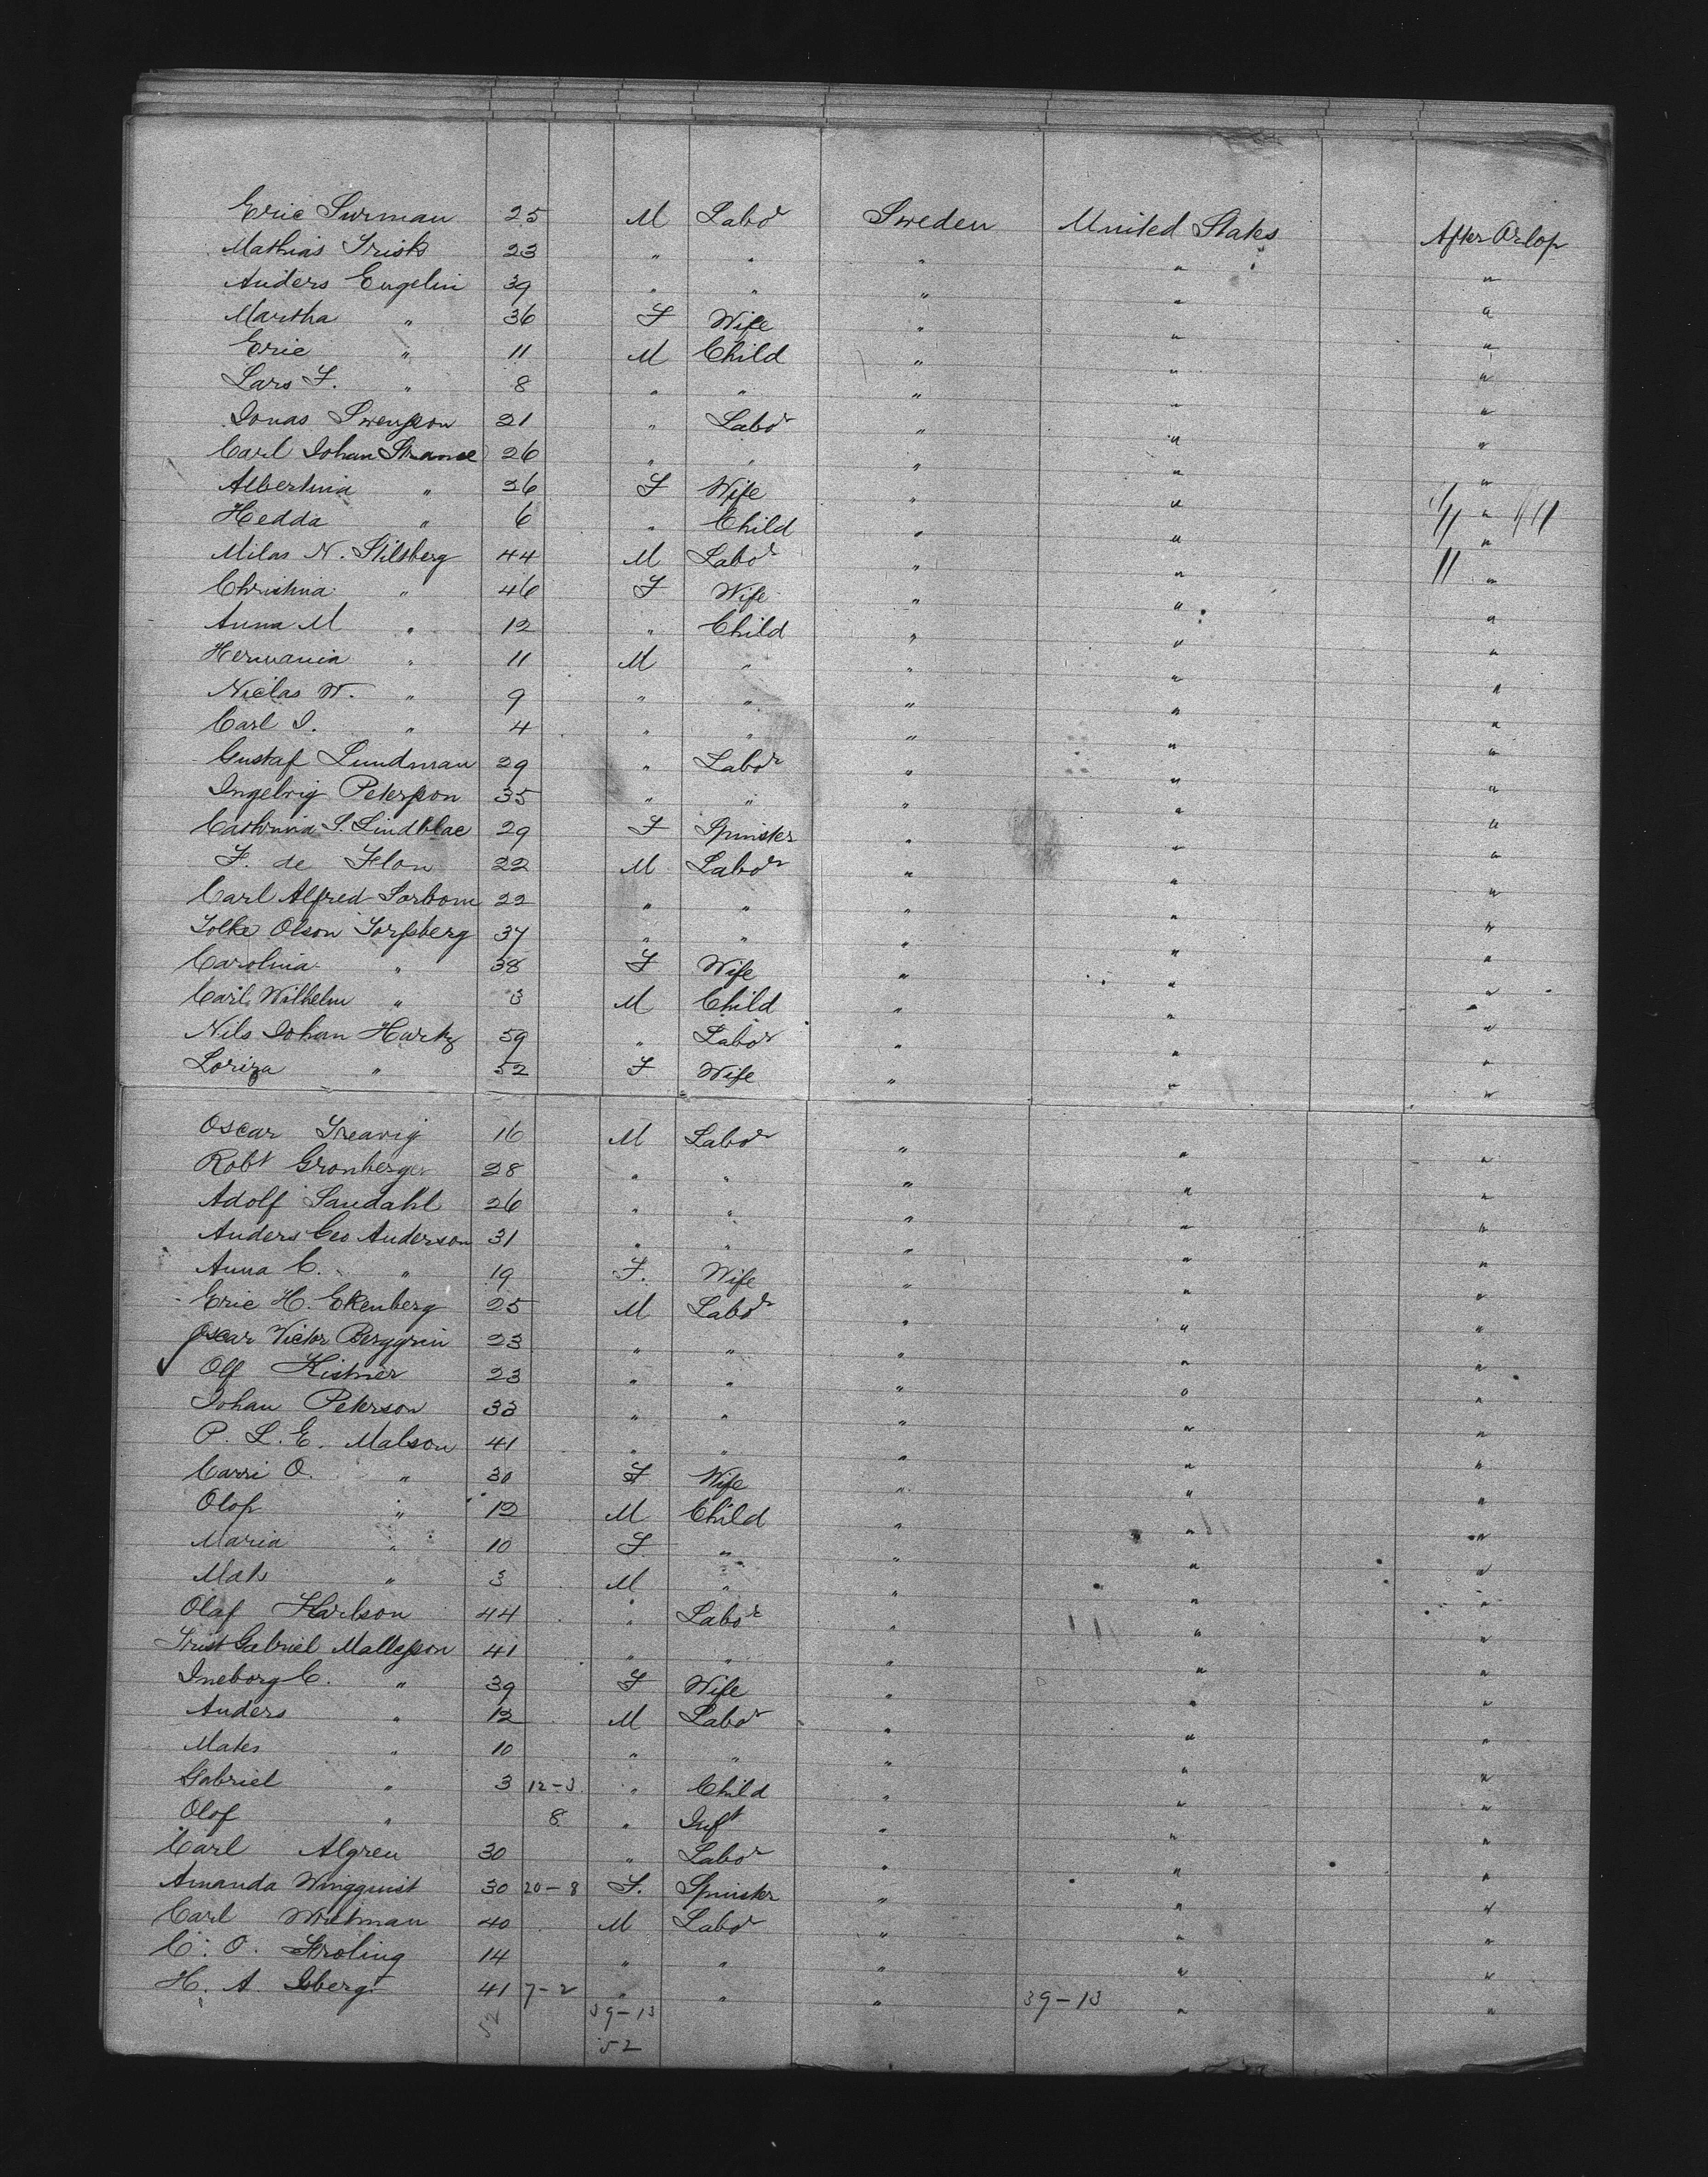 Eric Surman 25 M Labor Sweden United States After Orlop
Mathias Frisk 23 " " " " "
Anders Engelin 39 " " " " "
Martha " 36 F Wife " " "
Eric " 11 M Child " " "
Lars F. " 8 " " " " "
Jonas Swensson 21 " Labor " " "
Carl Johan 26 " " " " "
Albertina " 26 F Wife " " "
Hedda " 6 " Child " " "
Milas N. Stilsberg 44 M Labor " " "
Christina " 46 F Wife " " "
Anna M " 12 " Child " " "
Hermania " 11 M " " " "
Niclas W. " 9 " " " " "
Carl J. " 4 " " " " "
Gustaf Lundman 29 " Labor " " "
Ingelvig Petersson 35 " " " " "
Cathrina S. Lindblae 29 F Spinster " " "
F. de Flon 22 M Labor " " "
Carl Alfred Sorbom 22 " " " " "
Folke Olson Torssberg 37 " " " " "
Carolina " 38 F Wife " " "
Carl Wilhelm " 3 M Child " " "
Nils Johan Hartz 59 " Labor " " "
Loriza " 52 F Wife " " "
Oscar 16 M Labor " " "
Robt Gronberger 28 " " " " "
Adolf Sandahl 26 " " " " "
Anders Geo Anderson 31 " " " " "
Anna C. " 19 F. Wife " " "
Eric H. Ekenberg 25 M Labor " " "
Oscar Victor Berggrin 23 " " " " "
Olf Kistner 23 " " " " "
Johan Peterson 33 " " " " "
P. L. E. Malson 41 " " " " "
Carri O. " 30 F Wife " " "
Olof " 12 M Child " " "
Maria " 10 F. " " " "
Mats " 3 M " " " "
Olaf Karlson 44 " Labor " " "
Gabriel Mallesson 41 " " " " "
Ineborg C. " 39 F Wife " " "
Anders " 12 M Labor " " "
Mates " 10 " " " " "
Gabriel " 3 12-3 " Child " " "
Olof " 8 " Inft " " "
Carl Algren 30 " Labor " " "
Amanda Wingquist 30 20-8 F. Spinster " " "
Carl Writman 40 M Labor " " "
C. O. Froling 14 " " " " "
H. A. Isberg 41 7-2 " " " 39-13 " "
52 39-13
52